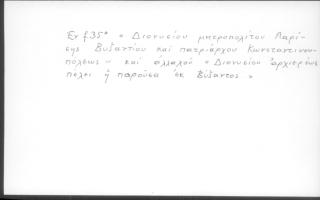 Εν f.35ª « Διονυσίου μητροπολίτου Λαρί-
σης Βυζαντίου καί πατριάρχου Κωνσταντινου-
πόλεως » καί ἀλλαχοῦ « Διονυσίου ἀρχιερέως
πέλει ἡ παροῦσα ἐκ Βύζαντος »